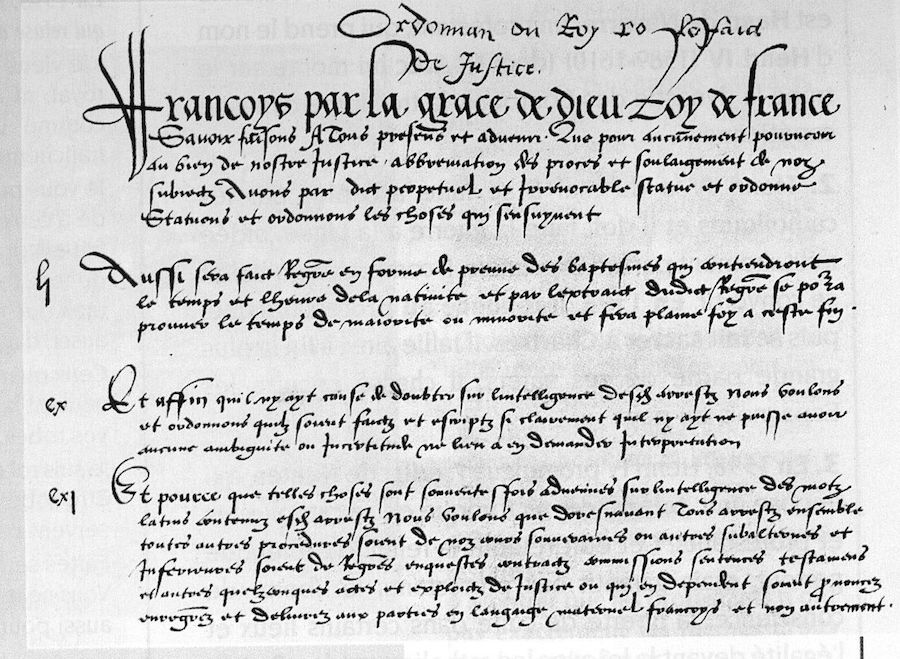 Ordonnan du Roy
De Justice.
Francoys par la grace de dieu Roy de france
Savoir faisons A Tous presens et advenir. Que pour aucunement pourveoir
au bien de nostre Justice. abbreviation des proces et soulaigement de noz
subiectz Avons par dict perpetuel et Irrevocable statue et ordonne
Statuons et ordonnons les choses qui sensuyvent
li Aussi sera faict Regre en forme de preuve des baptesmes qui contiendront
le temps et lheure dela nativite et par lextraict dudict Regre se porra
prouver le temps de maiorite ou minorite et fera plaine foy a ceste fin.
cx Et affin quil ny ayt cause de doubter sur lintelligence desdictz arrestz Nous voulons
et ordonnons quilz soient faictz et escriptz si clairement quil ny ayt ne puisse avoir
aucune ambiguite ou Incertitude ne lieu a en demander Interpretation
cxj Et pource que telles choses sont souventesfois advenues sur lintelligence des motz
latins contenuz esdictz arrestz Nous voulons que doresnavant Tous arrestz ensemble
toutes autres procedures soient de noz cours souveraines ou autres subalternes et
Inferieures soient de Regres enquestes contractz commissions sentences testamens
et autres quelzconques actes et exploictz de Justice ou qui en dependent soient pronocez
enregrez et delivrez aux parties en langaige maternel francoys et non autrement.